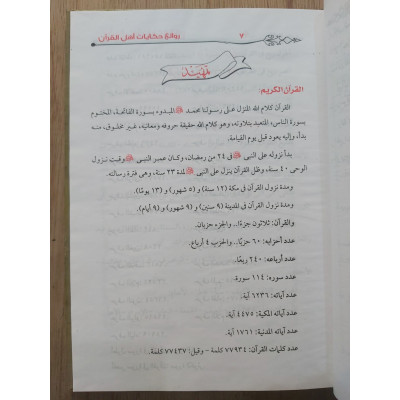 روائع حكايات أهل القرآن
٧
تمهيد
القرآن الكريم:
القرآن كلام الله المنزل على رسولنا محمد ﷺ المبدوء بسورة الفاتحة، المختوم
بسورة الناس، المتعبد بتلاوته، وهو كلام الله حقيقة حروفه ومعانيه، غير مخلوق، منه
بدأ، وإليه يعود قبل يوم القيامة.
بدأ نزوله على النبى ﷺ فى ٢٤ من رمضان، وكان عمر النبـى ﷺ وقـت نـزول
الوحى ٤٠ سنة، وظل القرآن ينزل على النبى ﷺ لمدة ٢٣ سنة، وهى فترة رسالته.
ومدة نزول القرآن فى مكة (١٢ سنة) و (٥ شهور) و (١٣ يومًا).
ومدة نزول القرآن فى المدينة (٩ سنين) و (٩ شهور) و (٩ أيام).
والقرآن: ثلاثون جزءًا.. والجزء حزبان.
عدد أحزابه: ٦٠ حزبًا.. والحزب ٤ أرباع.
عدد أرباعه: ٢٤٠ ربعًا.
عدد سوره: ١١٤ سورة.
عدد آياته: ٦٢٣٦ آية.
عدد آياته المكية: ٤٤٧٥ آية.
عدد آياته المدنية: ١٧٦١ آية.
عدد كلمات القرآن: ٧٧٩٣٤ كلمة – وقيل: ٧٧٤٣٧ كلمة.